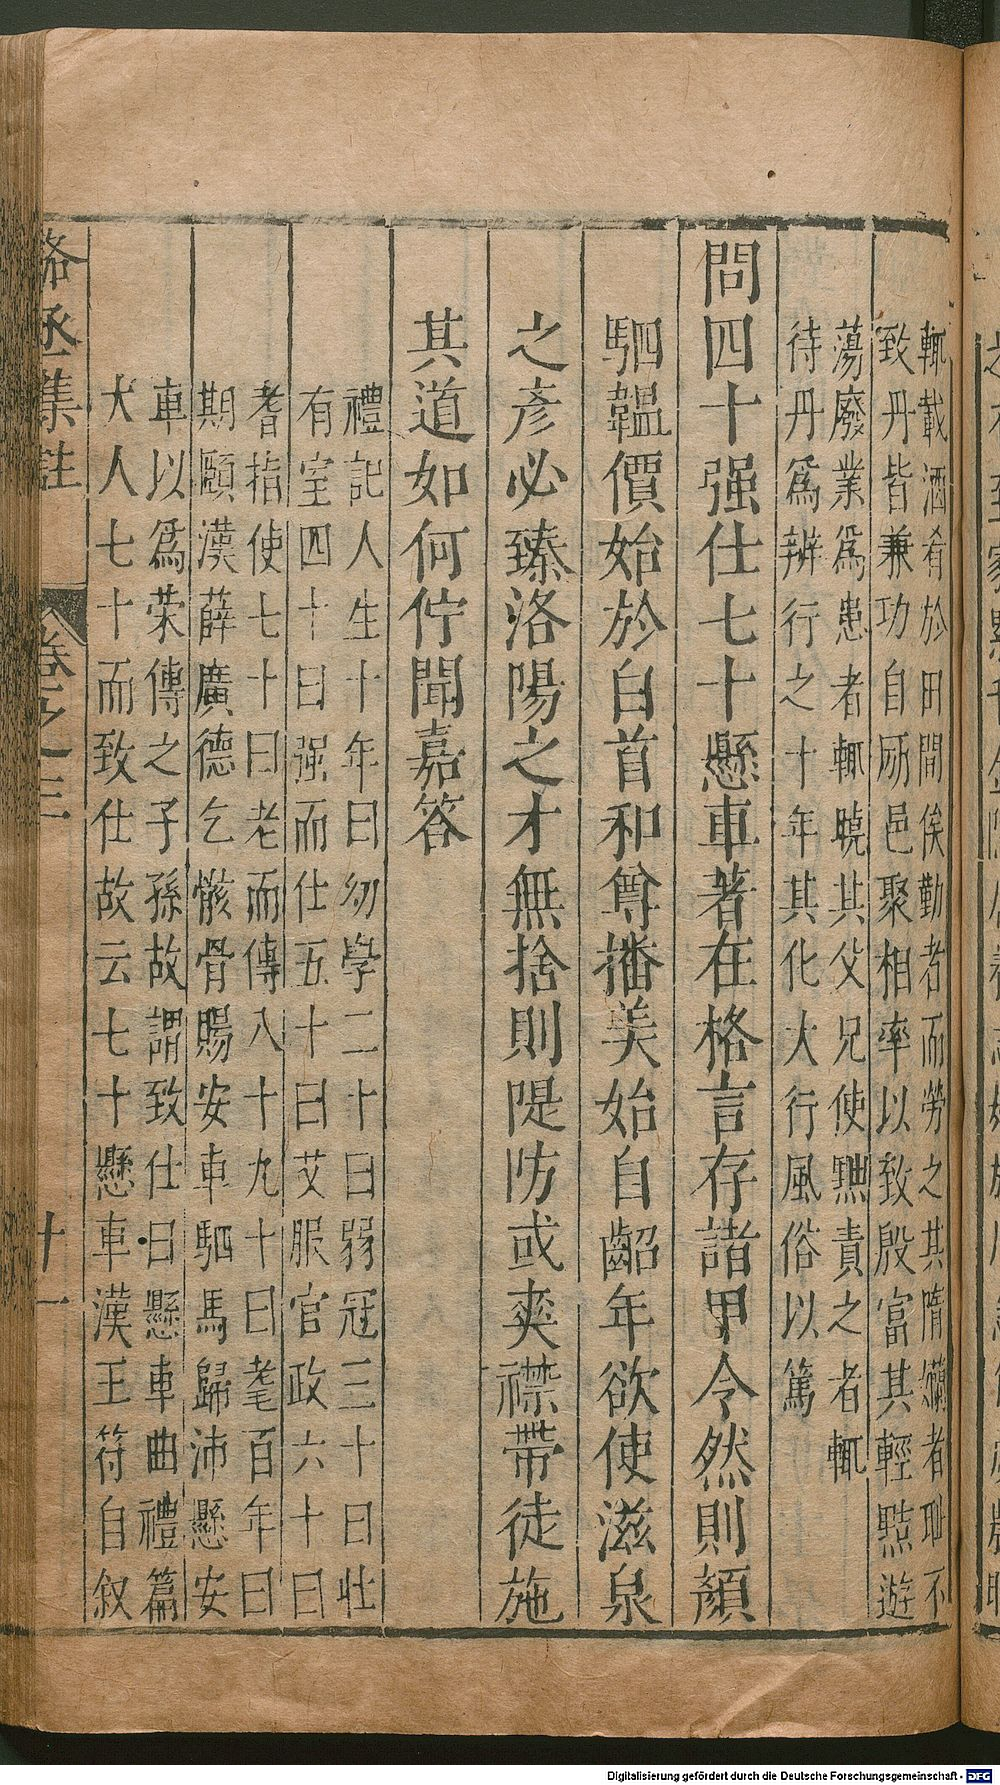 輒載酒肴於田間俟勤者而勞之其隋嬾者耻不
致丹皆兼功自厲邑聚相率以致殷富其輕黠遊
蕩廢業為患者輒曉其父兄使黜責之者輒
待丹為辦行之十年其化大行風俗以篤
問四十强仕七十懸車著在格言存諸甲令然則顏
駟韞價始於白首和尊播美始自齠年欲使滋泉
之彥必臻洛陽之才無捨則隄防或爽襟帶徒施
其道如何佇聞嘉答
禮記人生十年曰幼學二十曰弱冠三十曰壯
有室四十曰强而仕五十曰艾服官政六十曰
耆指使七十曰老而傳八十九十曰耄百年曰
期頤漢薛廣德乞骸骨賜安車駟馬歸沛懸安
車以為荣傳之子孫故謂致仕曰懸車曲禮篇
大人七十而致仕故云七十懸車漢王符自叙
駱丞集註 卷之三 十一
Digitalisierung gefördert durch die Deutsche Forschungsgemeinschaft - DFG